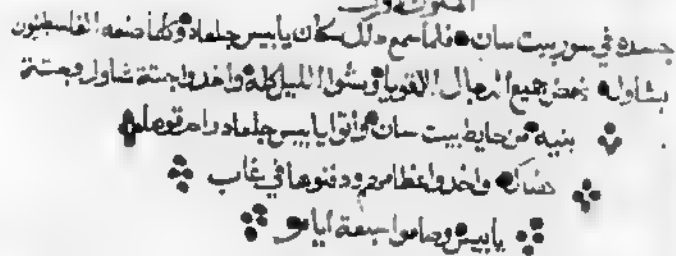 جسده في سور بيت سان فلما سمع ذلك سكان يابيس جلعاد وكلما صنعه الفلسطنيون
بشاول نهض جميع الرجال الاقويا ومشوا الليل كله واخدوا جتة شاول وجتت
بنيه من حايط بيت سان واتوا يابيس جلعاد واحرقوهم
هناك واخدوا عظامهم ودفنوها في غاب
يابيس وصاموا سبعة ايام